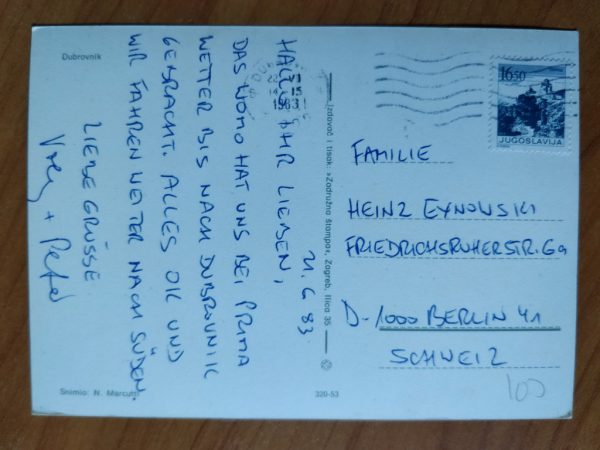 Dubrovnik
21.6.83.
HALLO IHR LIEBEN,
DAS WOMO HAT UNS BEI PRIMA
WETTER BIS NACH DUBROVNIK
GEBRACHT. ALLES OK UND
WIR FAHREN WEITER NACH SÜDEN.
LIEBE GRÜSSE
+ Peter
Snimio: N. Marcutti
Izdavač i tisak: »Zadružna štampa«, Zagreb, Ilica 35
320-53
22 VI
14-15
1983
16.50
JUGOSLAVIJA
FAMILIE
HEINZ EYNOWSKI
FRIEDRICHSRUHERSTR. 6a
D-1000 BERLIN 41
SCHWEIZ
100